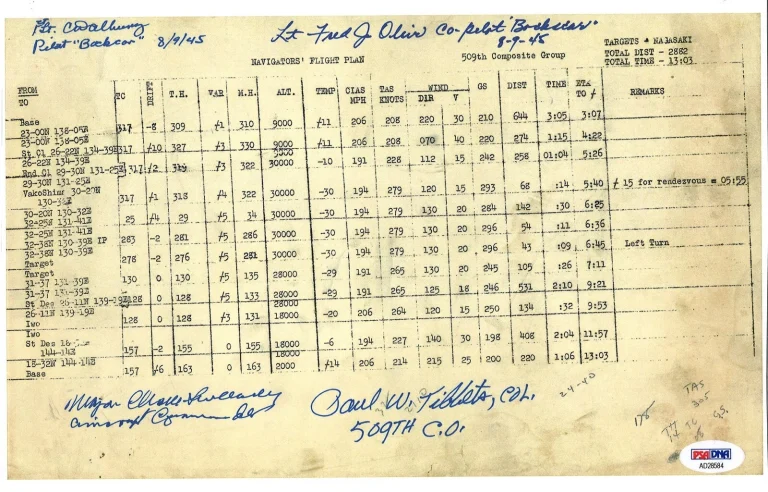 Pilot "Bockscar" 8/9/45
Lt Fred J Olivi Co-pilot "Bockscar"
8-9-45
TARGETS * NAGASAKI
TOTAL DIST - 2882
TOTAL TIME - 13:03
NAVIGATORS' FLIGHT PLAN 509th Composite Group
FROM TO TC DRIFT T.H. VAR M.H. ALT. TEMP CIAS MPH TAS KNOTS WIND DIR V GS DIST TIME ETA TO REMARKS
Base
23-00N 138-05E 317 -8 309 /1 310 9000 /11 206 208 220 30 210 644 3:05 3:07
23-00N 138-05E
St Cl 26-22N 134-39E 317 /10 327 /3 330 9000 /11 206 208 070 40 220 274 1:15 4:22
26-22N 134-39E
End Cl 29-30N 131-25E 317 /2 319 /3 322 30000 -10 191 228 112 15 242 258 01:04 5:26
29-30N 131-25E
YakoShima 30-20N 130-32E 317 /1 318 /4 322 30000 -30 194 279 120 15 293 68 :14 5:40 / 15 for rendezvous = 05:55
30-20N 130-32E
32-25N 131-41E 25 /4 29 /5 34 30000 -30 194 279 130 20 284 142 :30 6:25
32-25N 131-41E
32-38N 130-39E IP 283 -2 281 /5 286 30000 -30 194 279 130 20 296 54 :11 6:36
32-38N 130-39E
Target 278 -2 276 /5 281 30000 -30 194 279 130 20 296 43 :09 6:45 Left Turn
Target
31-37 131-39E 130 0 130 /5 135 28000 -29 191 265 130 20 245 105 :26 7:11
31-37 131-39E
St Des 26-11N 139-19E 128 0 128 /5 133 28000 -29 191 265 125 18 246 531 2:10 9:21
26-11N 139-19E
Iwo 128 0 128 /3 131 18000 -20 206 264 120 15 250 134 :32 9:53
Iwo
St Des 144-14E 157 -2 155 0 155 18000 -6 194 227 140 30 198 408 2:04 11:57
18-32N 144-14E
Base 157 /6 163 0 163 2000 /14 206 214 215 25 200 220 1:06 13:03
Major Charles Sweeney
Aircraft Commander
Paul W. Tibbets, COL.
509TH C.O.
24-40
TAS
305
G.S.
PSA DNA
AD28584